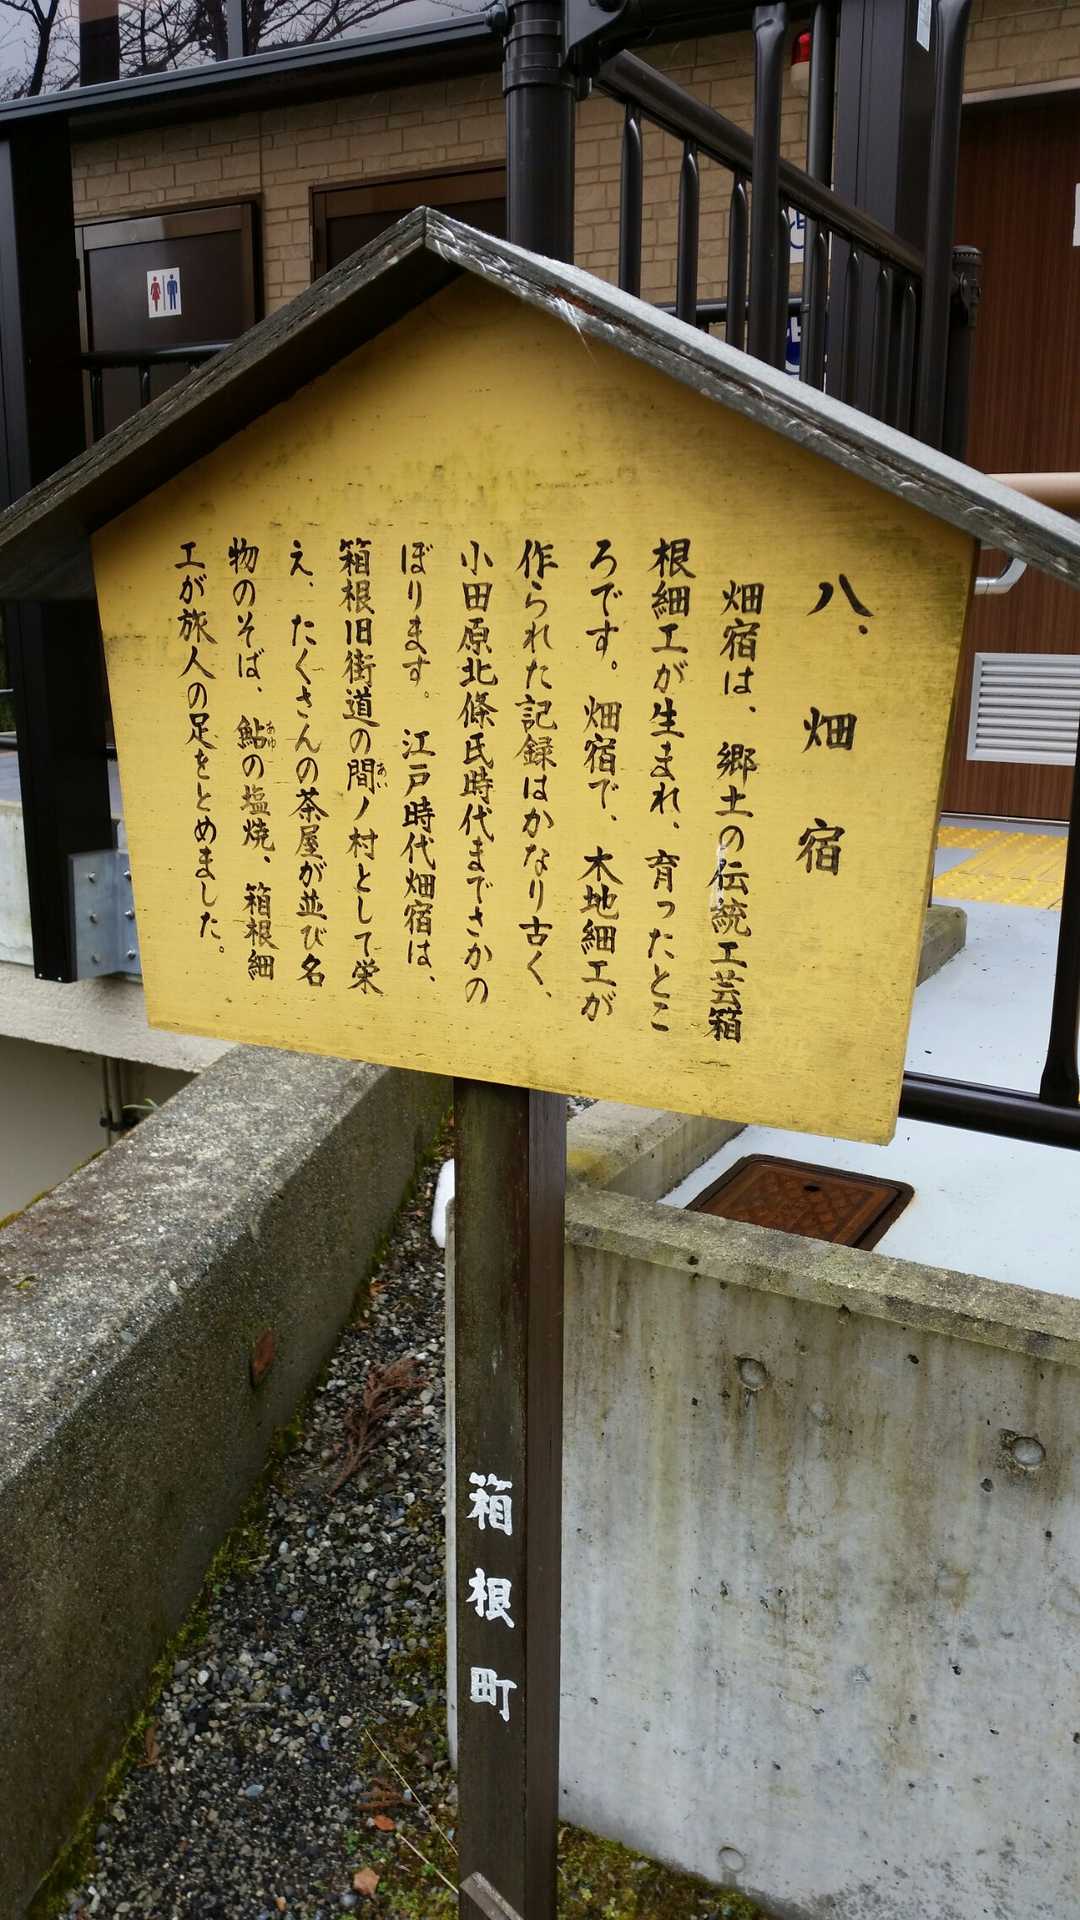 八、畑宿
畑宿は、郷土の伝統工芸箱
根細工が生まれ、育ったとこ
ろです。畑宿で、木地細工が
作られた記録はかなり古く、
小田原北條氏時代までさかの
ぼります。江戸時代畑宿は、
箱根旧街道の間ノ村として栄
あい
え、たくさんの茶屋が並び名
物のそば、鮎の塩焼、箱根細
あゆ
工が旅人の足をとめました。
箱根町